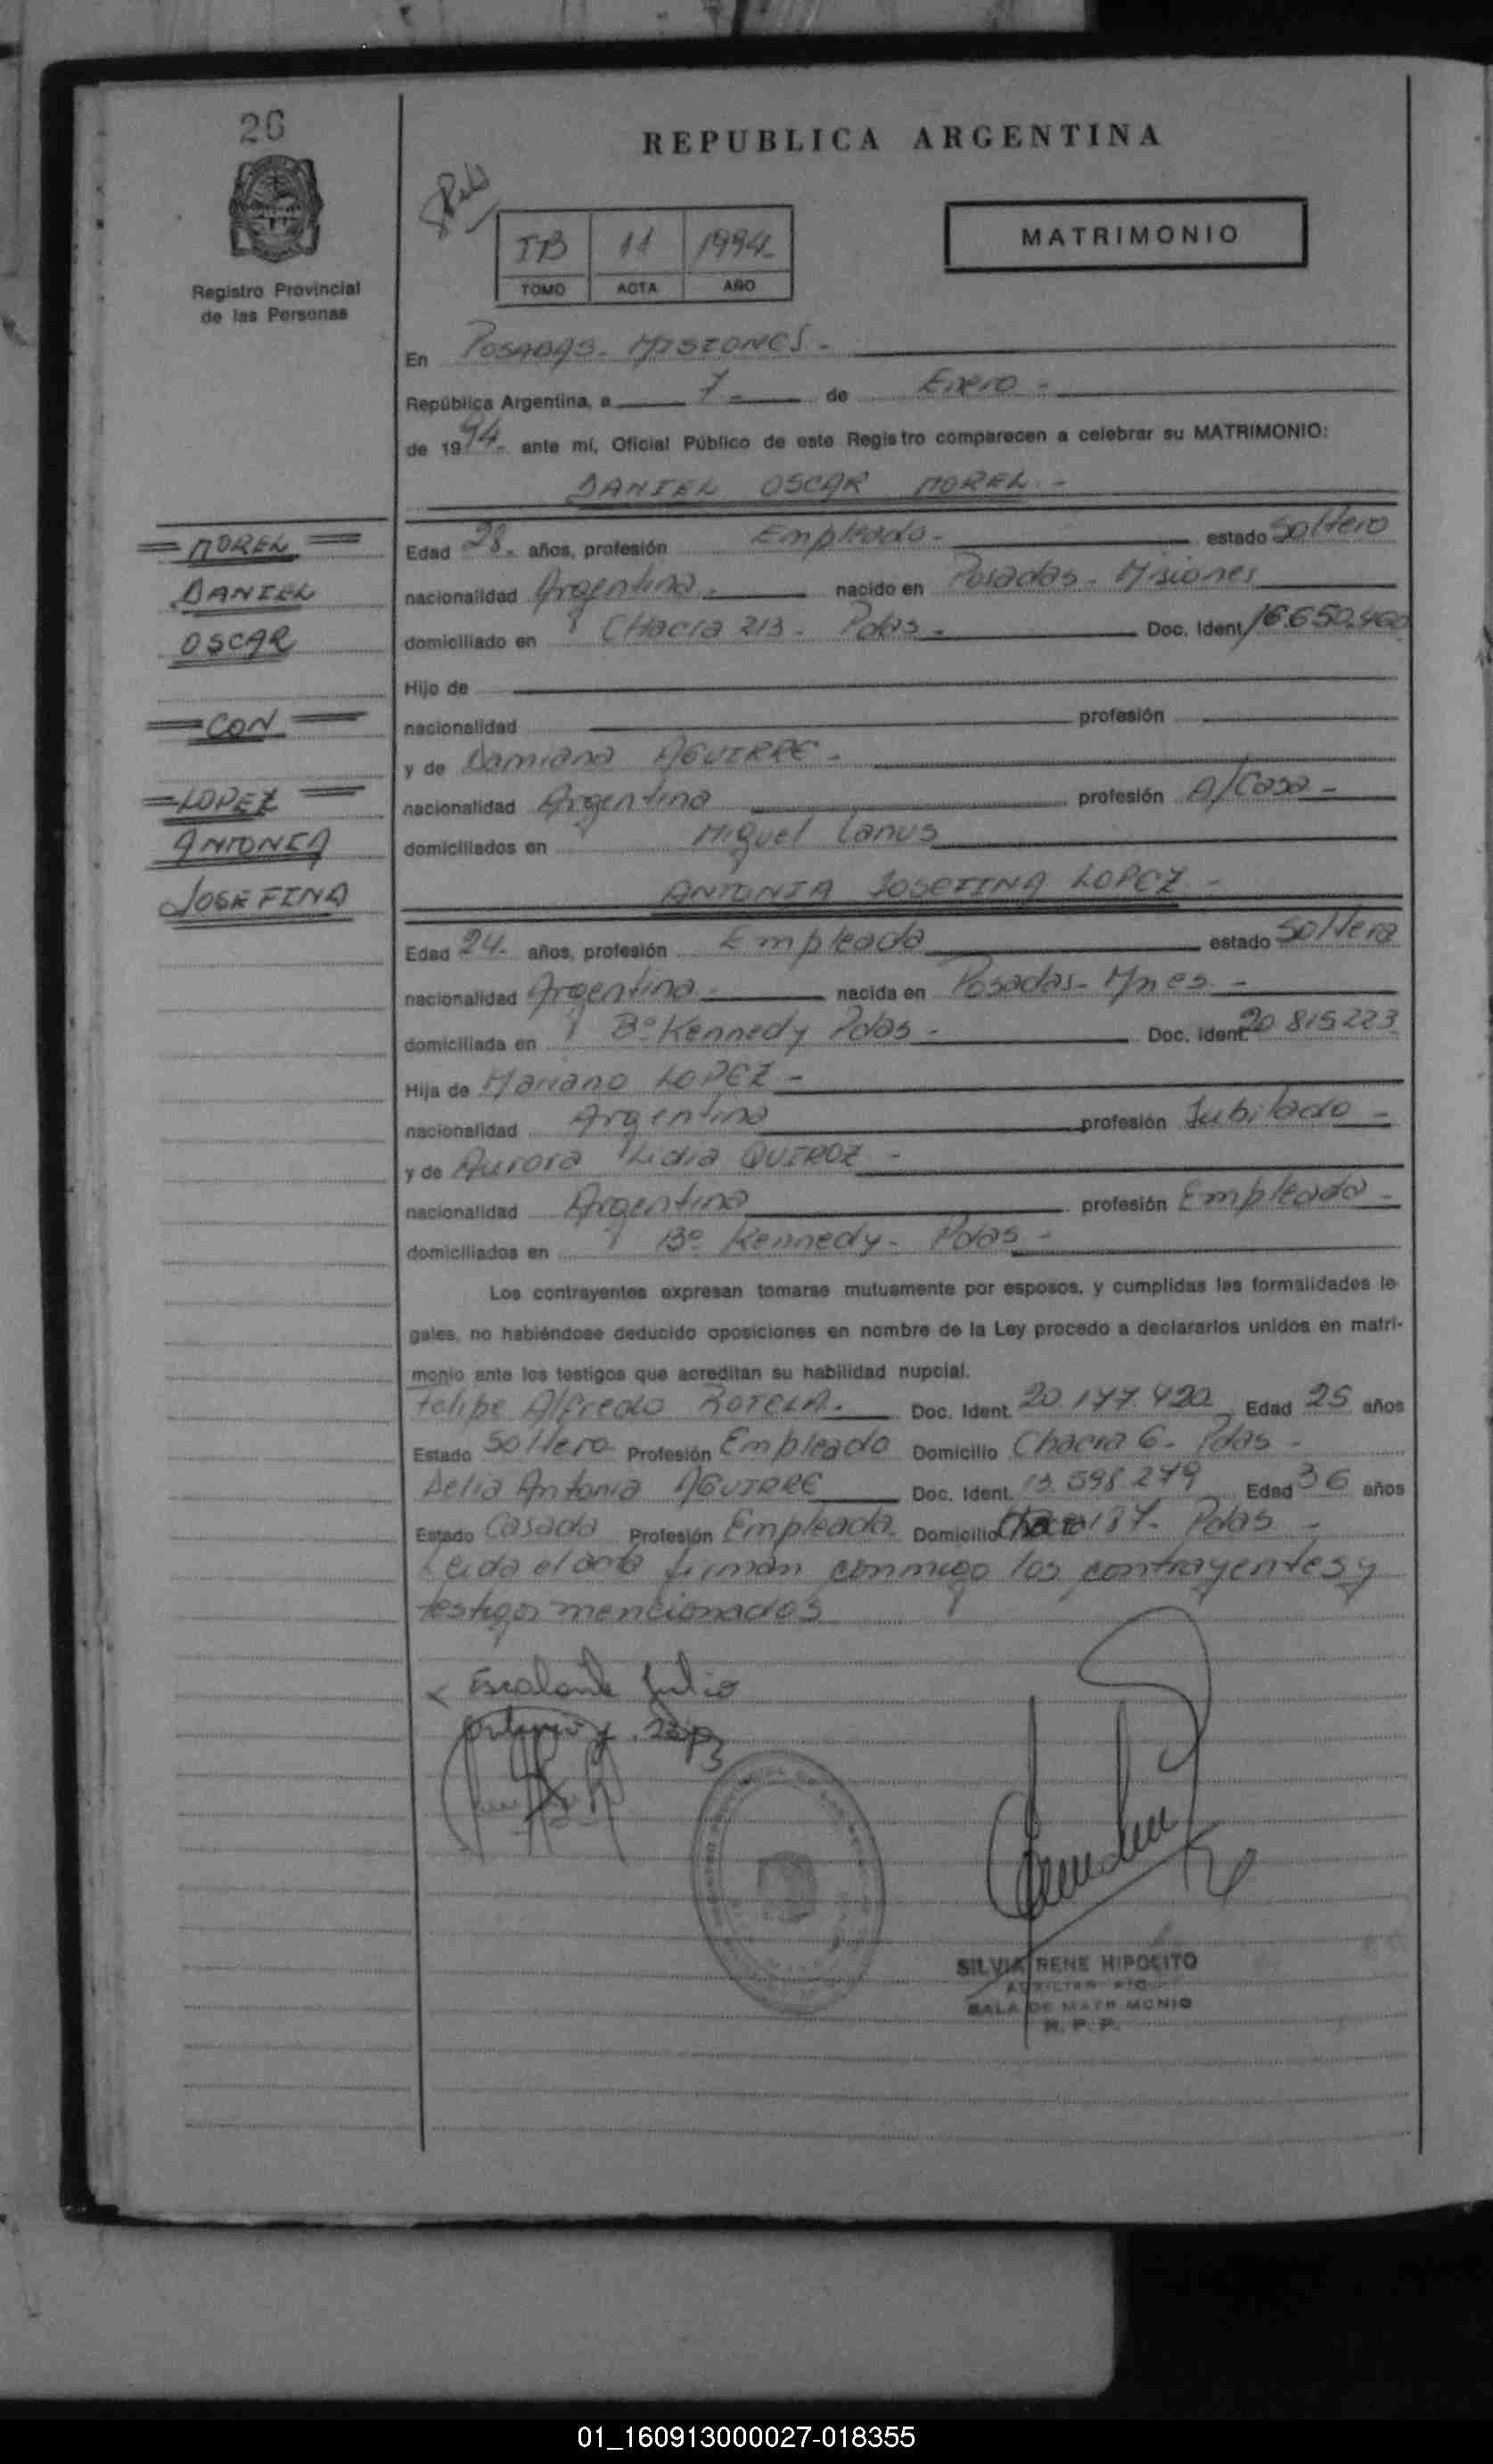 26
REPUBLICA ARGENTINA
Registro Provincial
de las Personas
TB 11 1994
TOMO ACTA AÑO
MATRIMONIO
En POSADAS - MISIONES -
República Argentina, a 7 - de Enero -
de 1994 - ante mí, Oficial Público de este Registro comparecen a celebrar su MATRIMONIO:
DANIEL OSCAR MOREL -
MOREL
DANIEL
OSCAR
CON
LOPEZ
ANTONIA
JOSEFINA
Edad 28 - años, profesión Empleado - estado Soltero
nacionalidad Argentina - nacido en Posadas - Misiones
domiciliado en CHacra 213 - Pdas - Doc. Ident. 16.650.400
Hijo de
nacionalidad profesión
y de Damiana AGUIRRE -
nacionalidad Argentina profesión A/Casa -
domiciliados en Miguel Lanus
ANTONIA JOSEFINA LOPEZ -
Edad 24 - años, profesión Empleada estado Soltera
nacionalidad Argentina - nacida en Posadas - Mnes -
domiciliada en Bº Kennedy Pdas - Doc. Ident. 20.815.223
Hija de Mariano LOPEZ -
nacionalidad Argentina profesión Jubilado -
y de Aurora Lidia QUIROZ -
nacionalidad Argentina profesión Empleada -
domiciliados en Bº Kennedy - Pdas -
Los contrayentes expresan tomarse mutuamente por esposos, y cumplidas las formalidades le-
gales, no habiéndose deducido oposiciones en nombre de la Ley procedo a declararlos unidos en matri-
monio ante los testigos que acreditan su habilidad nupcial.
Felipe Alfredo ROTELA. Doc. Ident. 20.177.420 Edad 25 años
Estado Soltero Profesión Empleado Domicilio Chacra 6 - Pdas -
Delia Antonia AGUIRRE Doc. Ident. 13.598.279 Edad 36 años
Estado Casada Profesión Empleada Domicilio Chacra 187 - Pdas -
Leida el acta firman conmigo los contrayentes y
testigos mencionados
Escalante Julio
SILVIA RENE HIPOLITO
SALA DE MATRIMONIO
R. P. P.
01_160913000027-018355